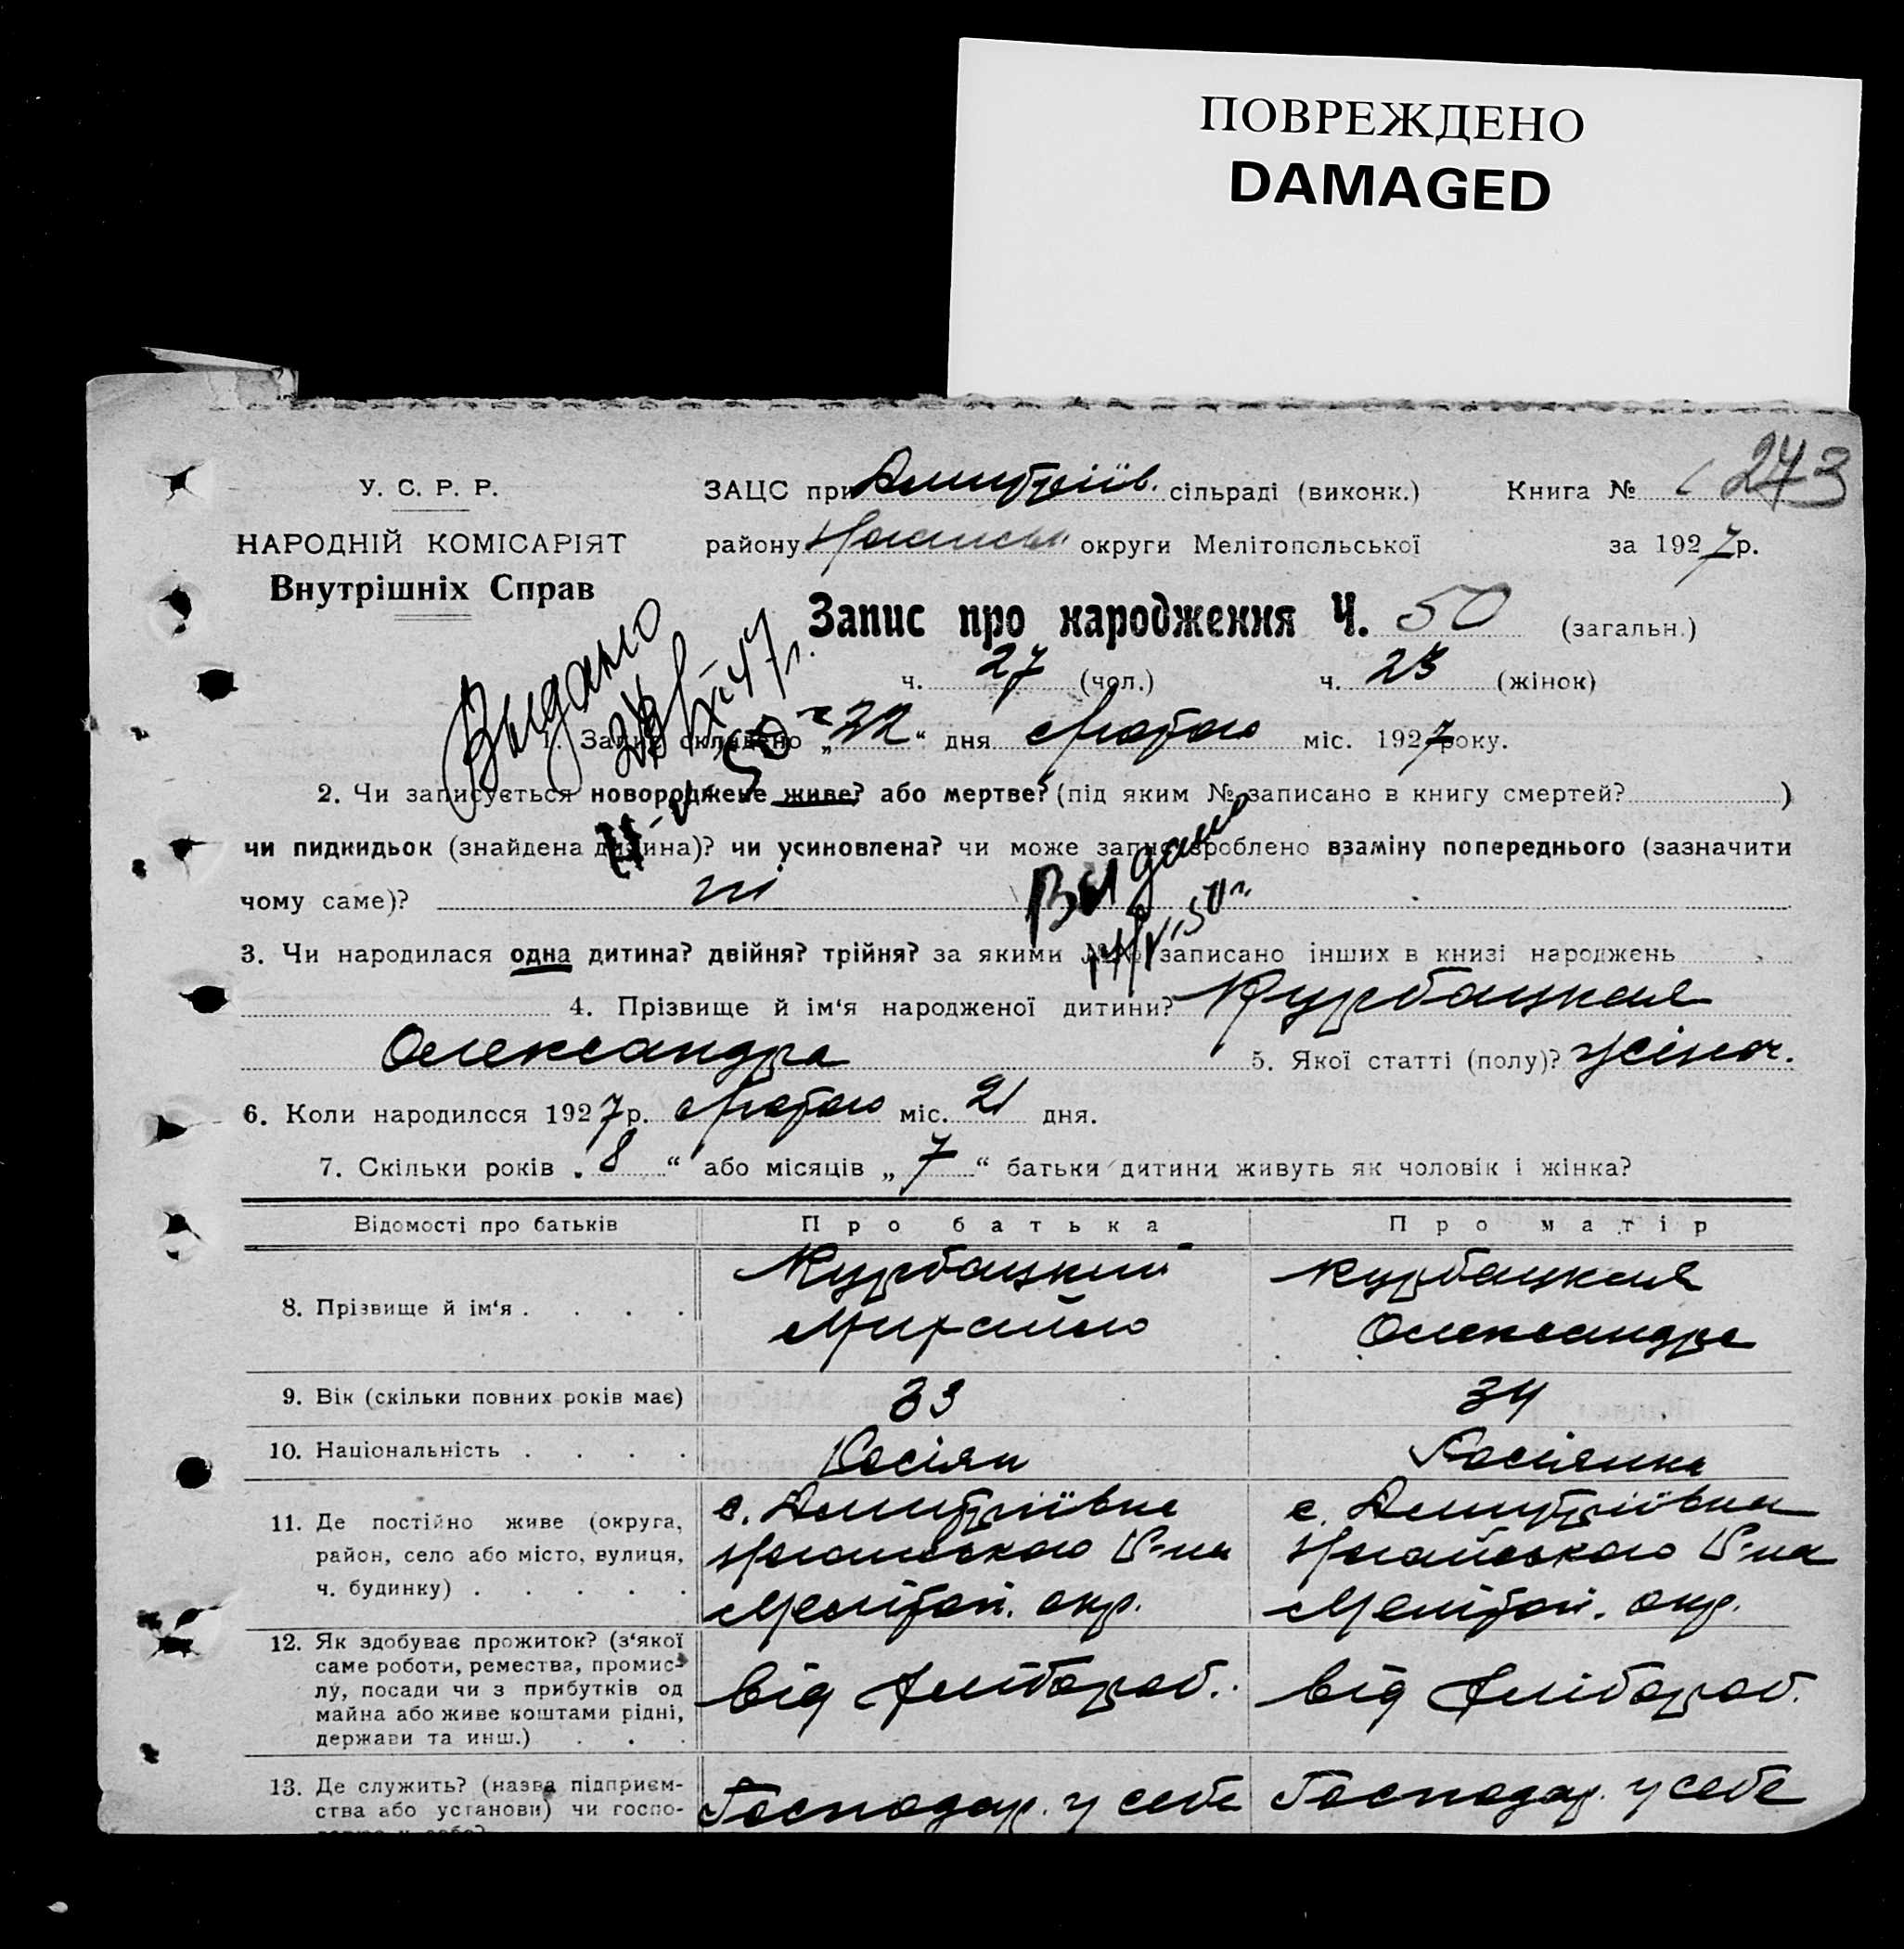 ПОВРЕЖДЕНО
DAMAGED
273
У. С. Р. Р.
НАРОДНІЙ КОМІСАРІЯТ
Внутрішніх Справ
ЗАЦС при Дмитріїв. сільраді (виконк.) Книга №
району округи Мелітопольської за 1927 р.
Запис про народження Ч. 50 (загальн.)
ч. 27 (чол.) ч. 23 (жінок)
Выдано
1. Запис складено „22“ дня Лютого міс. 1927 року.
2. Чи записується новороджене живе? або мертве? (під яким № записано в книгу смертей? )
чи пидкидьок (знайдена дитина)? чи усиновлена? чи може запис зроблено взаміну попереднього (зазначити
чому саме)? ні
Видано
3. Чи народилася одна дитина? двійня? трійня? за якими №№ записано інших в книзі народжень
4. Прізвище й ім'я народженої дитини? Курбацкая
Олександра 5. Якої статті (полу)? жіноч.
6. Коли народилося 1927 р. Лютого міс. 21 дня.
7. Скільки років „8“ або місяців „7“ батьки дитини живуть як чоловік і жінка?
Відомості про батьків Про батька Про матір
8. Прізвище й ім'я . . . . Курбацкий Михайло Курбацкая Олександра
9. Вік (скільки повних років має) 33 34
10. Національність . . . . Росіян Росіянка
11. Де постійно живе (округа, с. Дмитріївка с. Дмитріївка
район, село або місто, вулиця, Ногайського Р-на Ногайського Р-на
ч. будинку) . . . . . Мелітоп. окр. Мелітоп. окр.
12. Як здобуває прожиток? (з'якої
саме роботи, ремества, промис-
лу, посади чи з прибутків од від хлібороб. від хлібороб.
майна або живе коштами рідні,
держави та инш.) . . .
13. Де служить? (назва підприєм-
ства або установи) чи госпо- Господар. у себе Господар. у себе